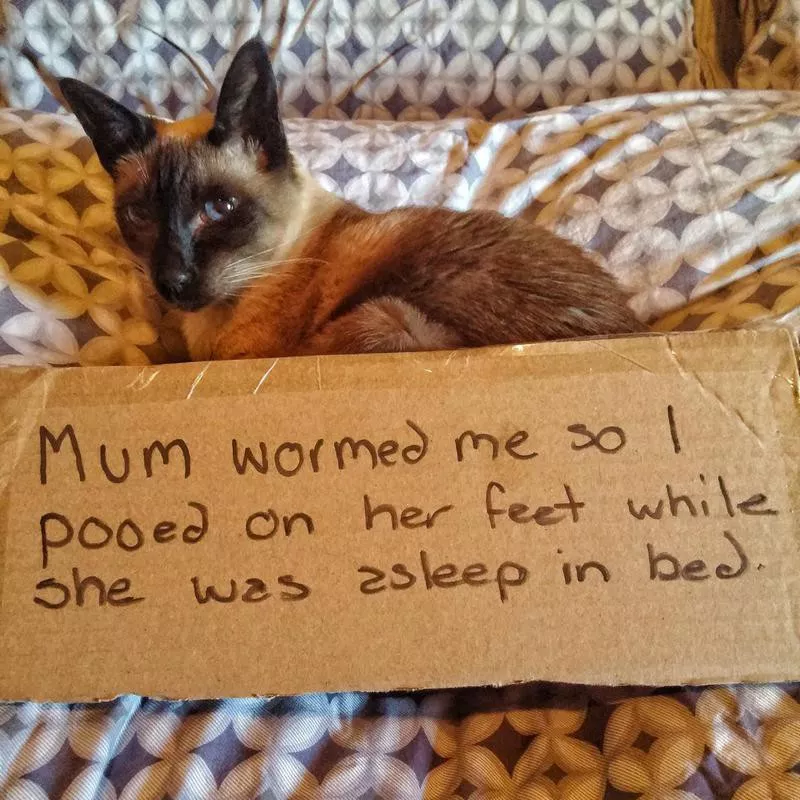 Mum wormed me so I
pooed on her feet while
she was asleep in bed.